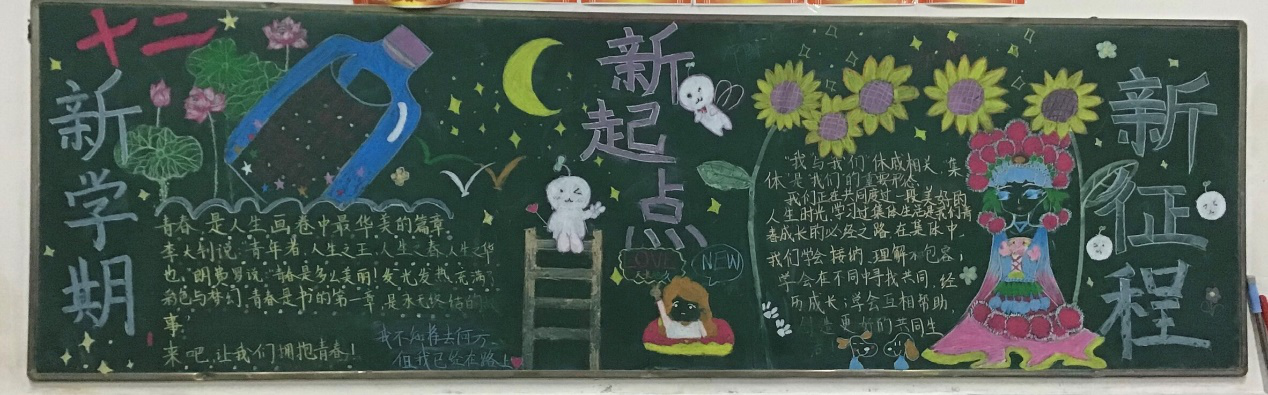 十二
新学期
青春是人生画卷中最华美的篇章。
李大钊说:青年者,人生之王,人生之春,人生之华
也。朗费罗说:青春是多么美丽!发光发热,充满了
彩色与梦幻,青春是书的第一章,是永无终结的
事
来吧,让我们拥抱青春!
我不知将去何方
但我已经在路上
新起点
NEW
“我与我们”休戚相关,集
体是我们的重要形态
我们正在共同度过一段美好的
人生时光,学习过集体生活是我们青
春成长的必经之路,在集体中,
我们学会接纳、理解和包容;
学会在不同中寻找共同,经
历成长;学会互相帮助,
更好的共同生
新征程